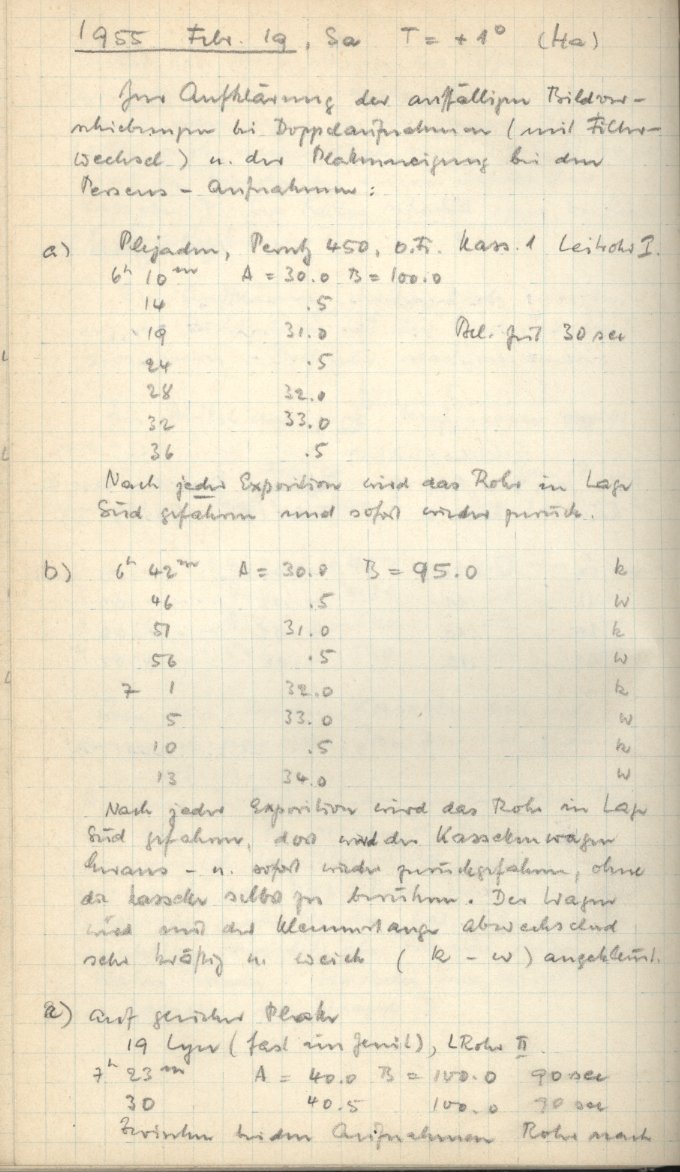 1955 Febr. 19, Sa T = + 1° (Ha)
Zur Aufklärung der auffälligen Bildver-
schiebungen bei Doppelaufnahmen (mit Filter-
wechsel) u. der Plattenneigung bei den
Perseus - Aufnahmen:
a) Plejaden, Perutz 450, o. Fi. Kass. 1 Leitrohr I.
6h 10m A = 30.0 B = 100.0
14 .5
19 31.0 Bel. Zeit 30 sec
24 .5
28 32.0
32 33.0
36 .5
Nach jeder Exposition wird das Rohr in Lage
Süd gefahren und sofort wieder zurück.
b) 6h 42m A = 30.0 B = 95.0 k
46 .5 w
51 31.0 k
56 .5 w
7 1 32.0 k
5 33.0 w
10 .5 k
13 34.0 w
Nach jeder Exposition wird das Rohr in Lage
Süd gefahren, dort wird der Kassettenwagen
heraus - u. sofort wieder zurückgefahren, ohne
die Kassette selbst zu berühren. Der Wagen
wird mit der Klemmstange abwechselnd
sehr kräftig u. weich (k - w) angeklemmt.
a) auf gleicher Platte
19 Lyn (fast im Zenit), LRohr II
7h 23m A = 40.0 B = 100.0 90 sec
30 40.5 100.0 90 sec
Zwischen beiden Aufnahmen Rohr nach